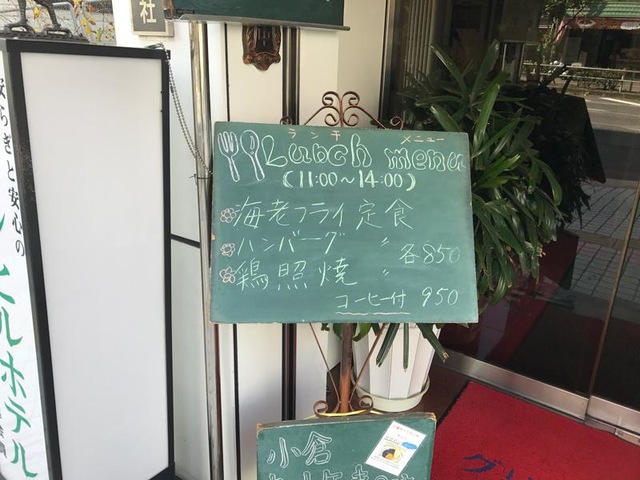 社
ランチ メニュー
Lunch menu
(11:00～14:00)
海老フライ定食
ハンバーグ 〃 各850
鶏照焼 〃
コーヒー付 950
小倉
安らぎと安心の
ルホテル